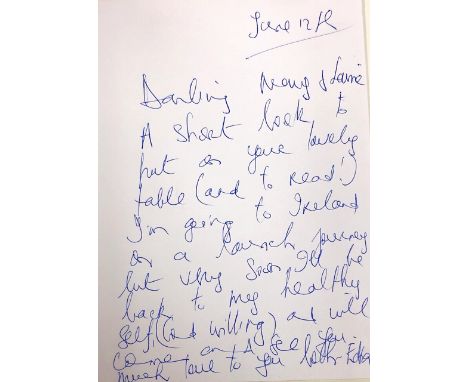 June 12th
Darling Many & Laurie
A short book to
put on your lovely
table (and to read!)
I'm going to Ireland
on a launch journey
but very soon I'll be
back to my healthy
self (and willing) and will
come on & see you.
Much love to you both Edna